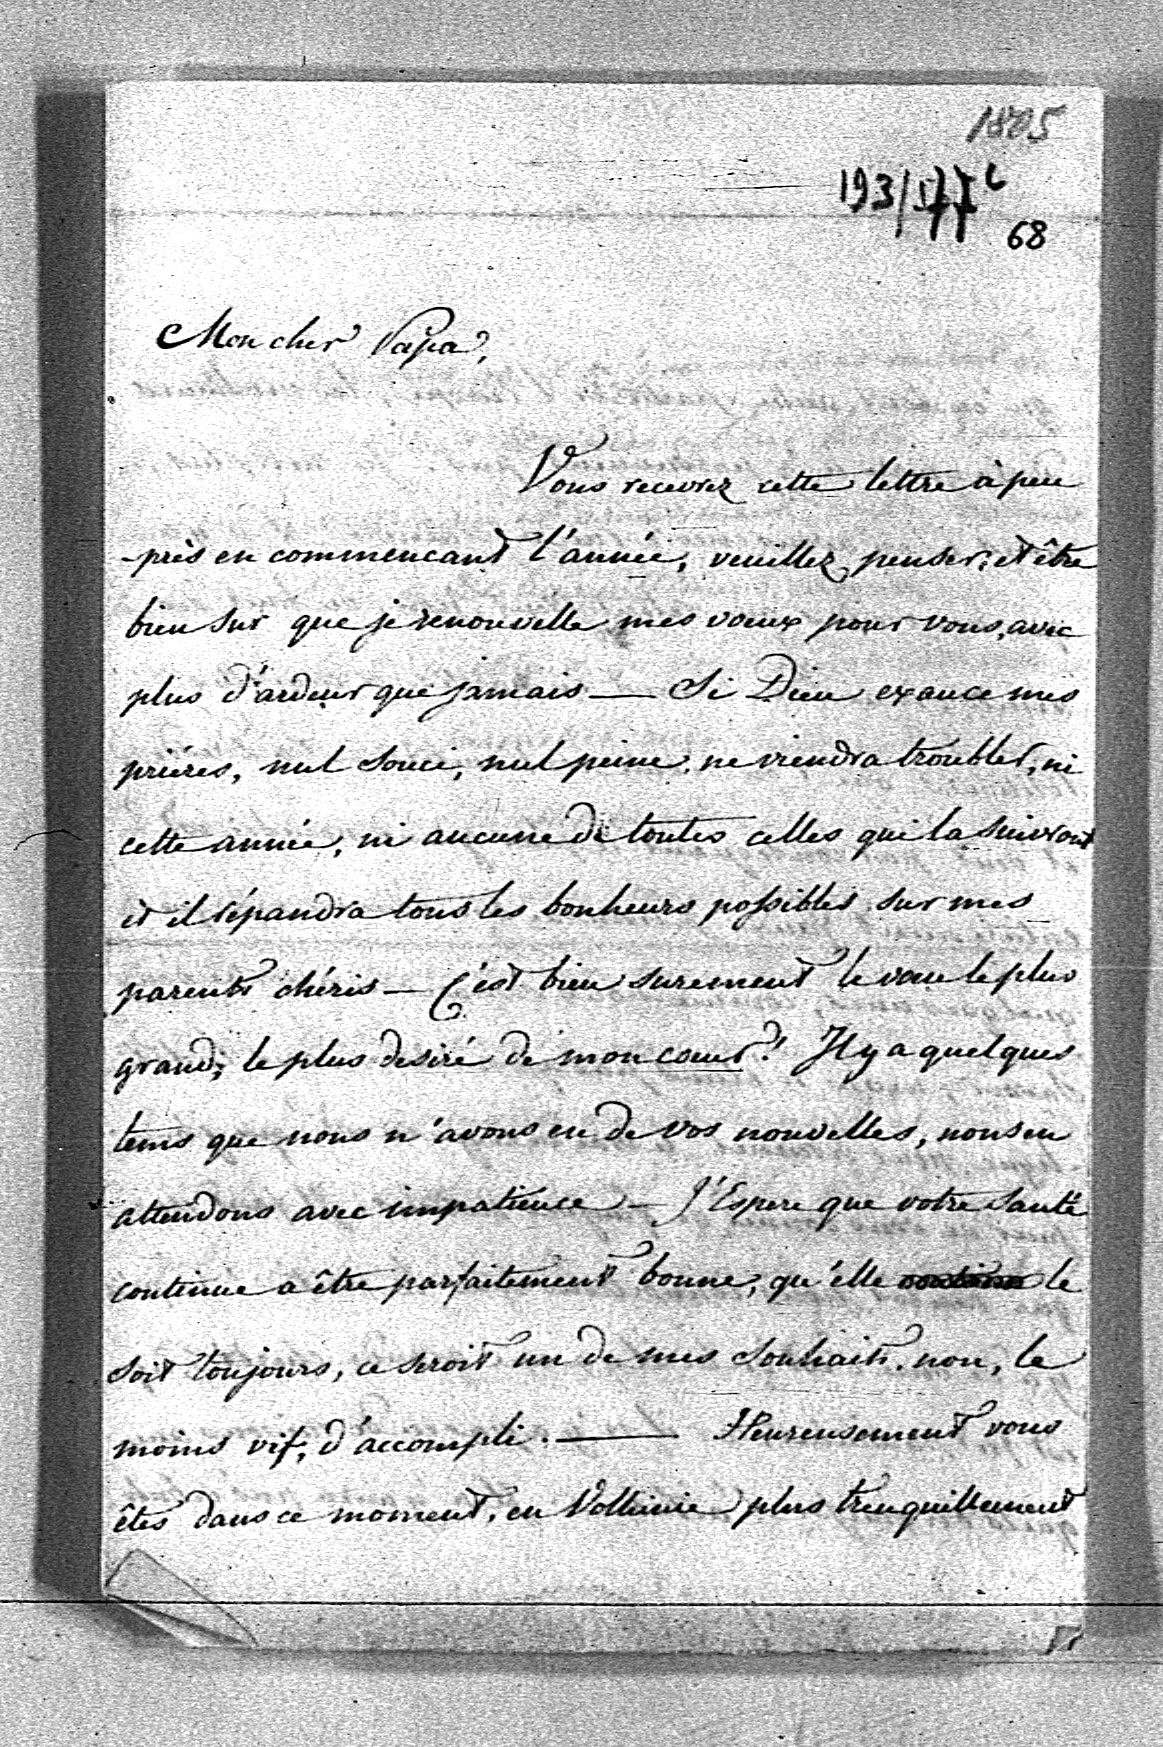 1805
193/577 c
68
Mon cher Papa,
Vous recevrez cette lettre à peu
-près en commencant l'année, veuillez penser, et être
bien sur que je renouvelle mes voeux pour vous, avec
plus d'ardeur que jamais — Si Dieu exauce mes
priéres, nul souci, nul peine, ne viendra troubler, ni
cette année, ni aucune de toutes celles qui la suivront
et il répandra tous les bonheurs possibles sur mes
parents chéris — C'est bien surement le voeu le plus
grand, le plus desiré de mon coeur! Il y a quelques
tems que nous n'avons eu de vos nouvelles, nous en
attendons avec impatience — J'Espere que votre santé
continue a être parfaitement bonne, qu'elle le
soit toujours, ce seroit un de mes souhaits, non, le
moins vif, d'accompli. — Heureusement vous
êtes dans ce moment, en Volhinie plus trenquillement